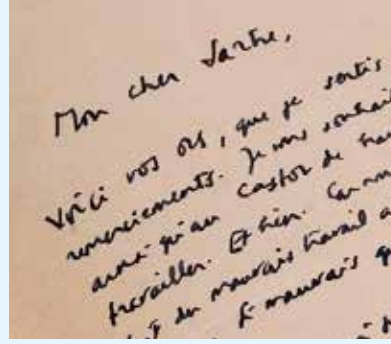 Mon cher Sartre,
Voici vos , que je sortis
remerciements. Je vous souhait
ainsi qu'au Castor de
travailler. Et bien. Car
du mauvais travail a
mauvais q